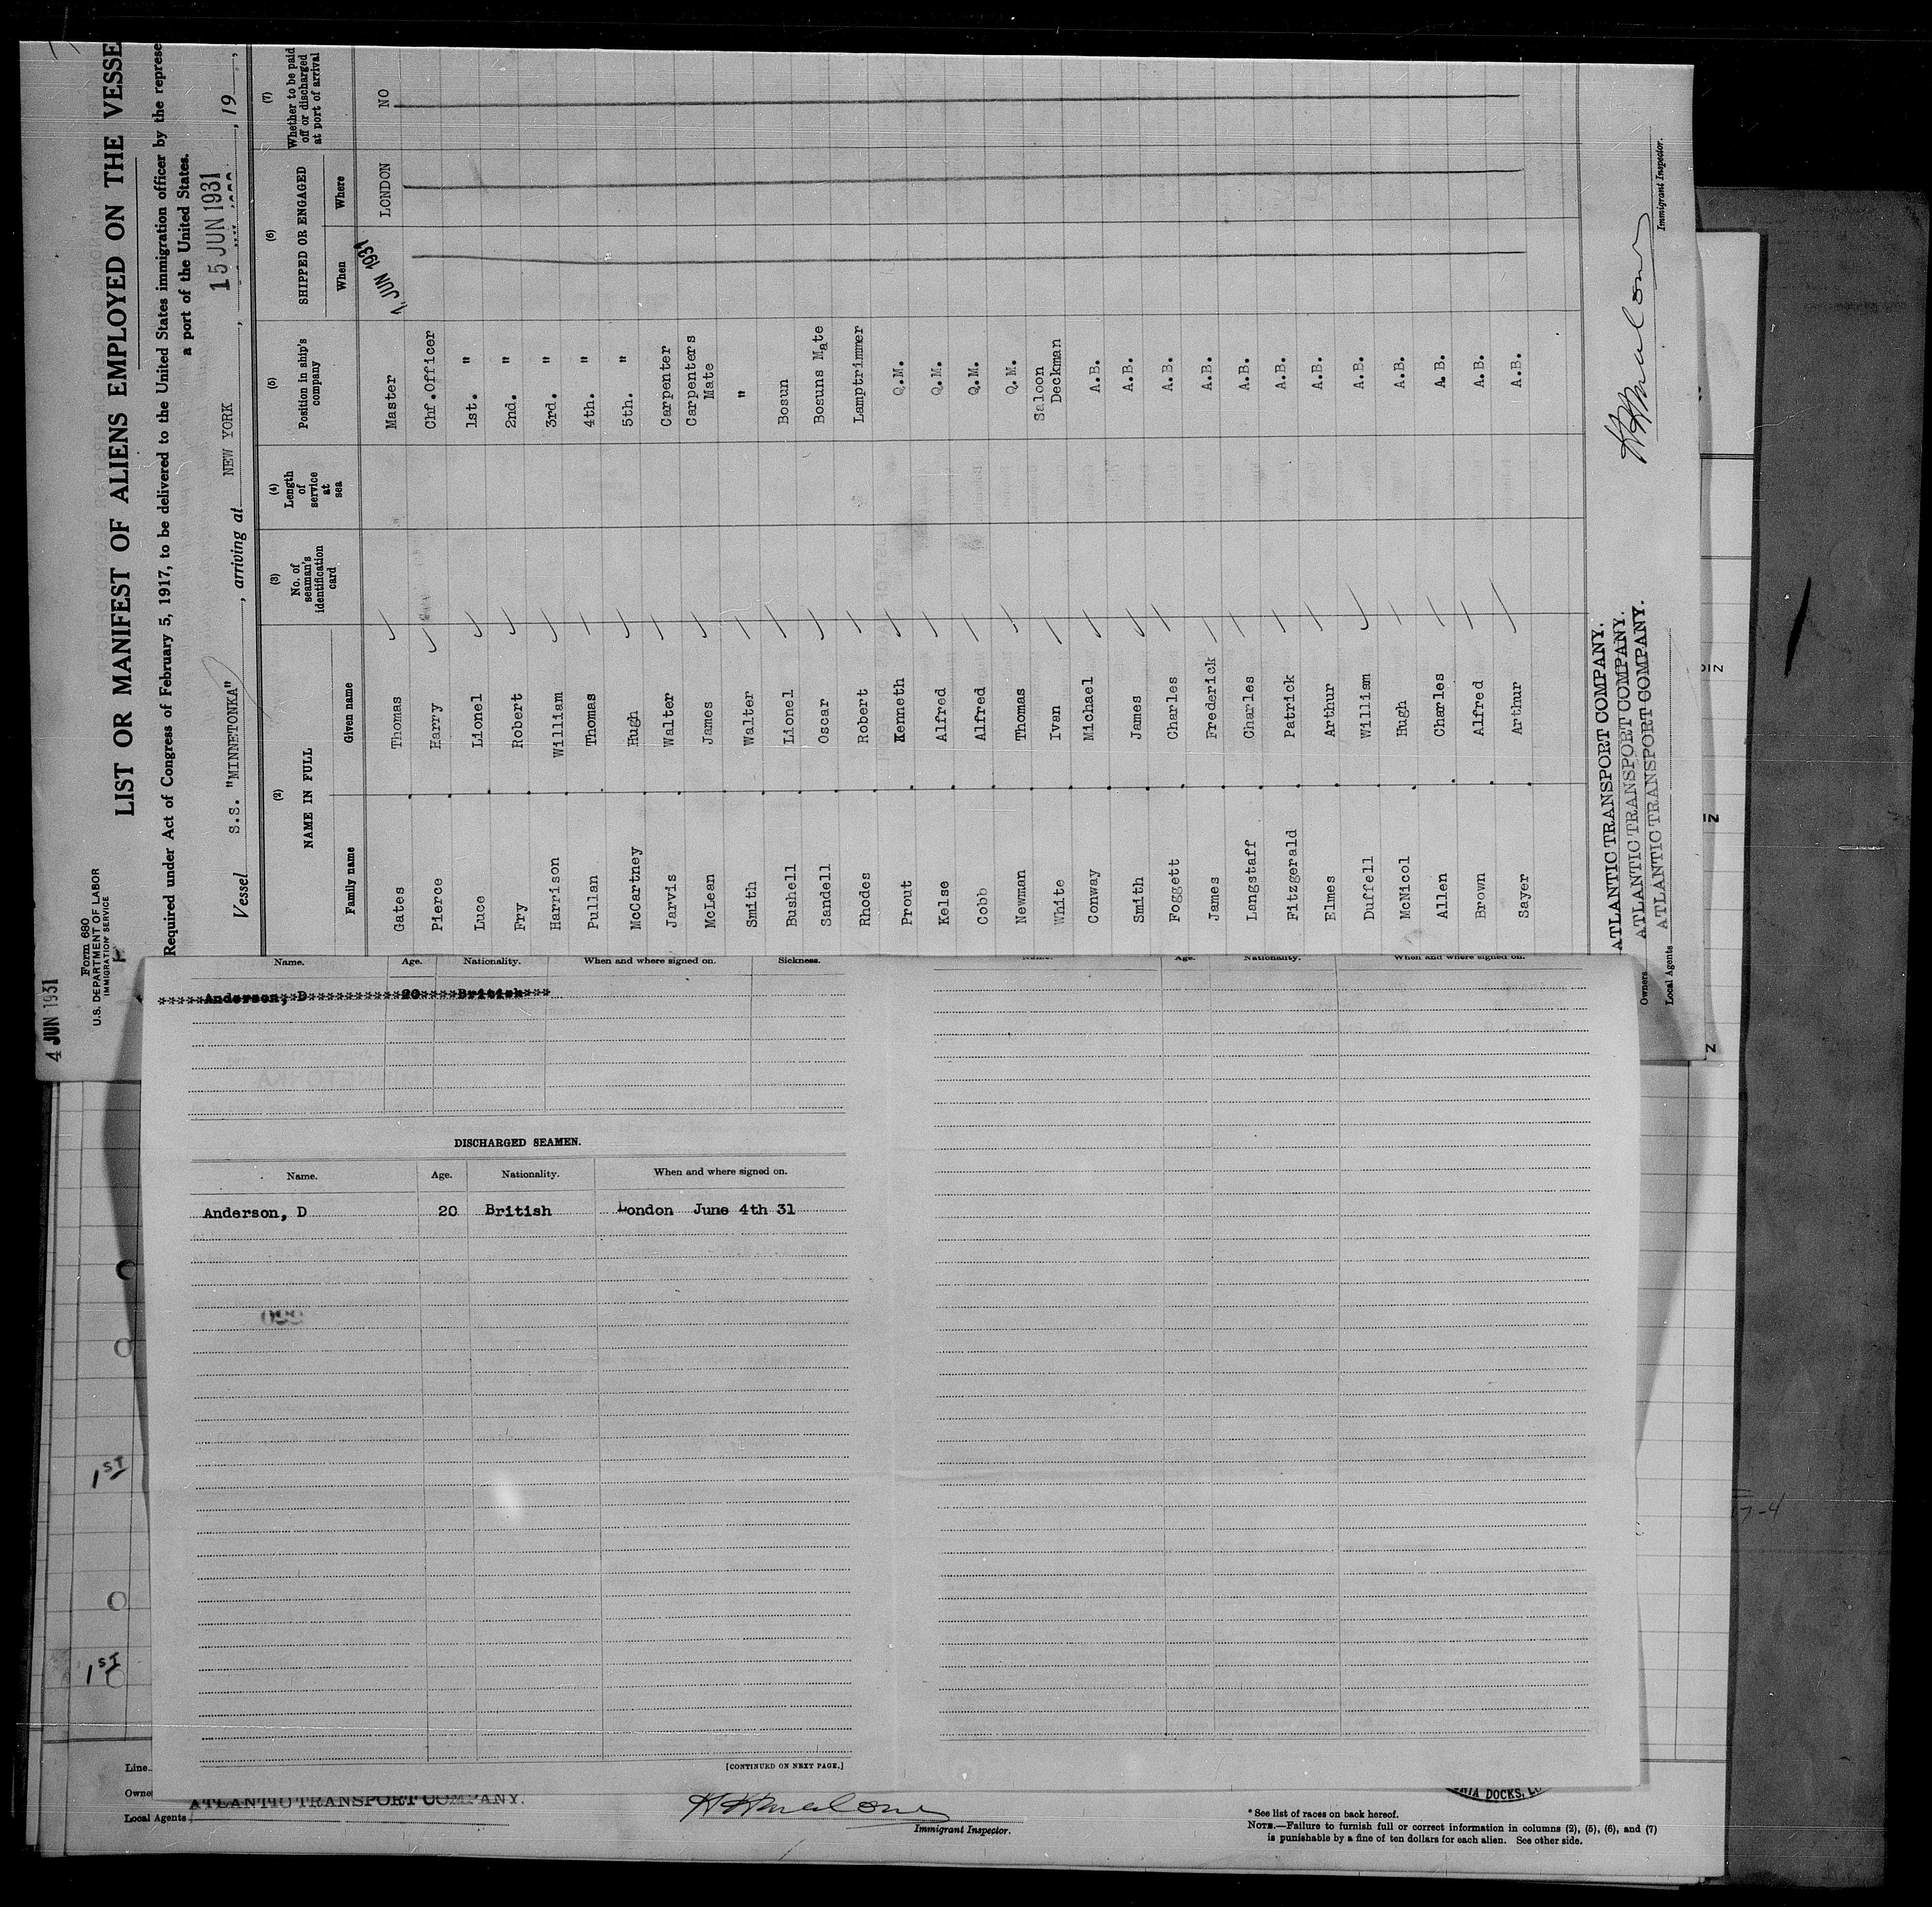 4 JUN 1931
Form 680
U.S. DEPARTMENT OF LABOR
IMMIGRATION SERVICE
LIST OR MANIFEST OF ALIENS EMPLOYED ON THE VESSE
Required under Act of Congress of February 5, 1917, to be delivered to the United States immigration officer by the represe
a port of the United States.
Vessel S.S. "MINNETONKA", arriving at NEW YORK, 15 JUN 1931, 19
(2) (3) (4) (5) (6) (7)
NAME IN FULL No. of seaman's identification card Length of service at sea Position in ship's company SHIPPED OR ENGAGED Whether to be paid off or discharged at port of arrival
Family name Given name When Where
Gates Thomas Master 4 JUN 1931 LONDON NO
Pierce Harry Chf. Officer
Luce Lionel 1st. "
Fry Robert 2nd. "
Harrison William 3rd. "
Pullan Thomas 4th. "
McCartney Hugh 5th. "
Jarvis Walter Carpenter
McLean James Carpenters Mate
Smith Walter "
Bushell Lionel Bosun
Sandell Oscar Bosuns Mate
Rhodes Robert Lamptrimmer
Prout Kenneth Q.M.
Kelse Alfred Q.M.
Cobb Alfred Q.M.
Newman Thomas Q.M.
White Ivan Saloon Deckman
Conway Michael A.B.
Smith James A.B.
Foggett Charles A.B.
James Frederick A.B.
Langstaff Charles A.B.
Fitzgerald Patrick A.B.
Elmes Arthur A.B.
Duffell William A.B.
McNicol Hugh A.B.
Allen Charles A.B.
Brown Alfred A.B.
Sayer Arthur A.B.
ATLANTIC TRANSPORT COMPANY.
ATLANTIC TRANSPORT COMPANY.
Owners
ATLANTIC TRANSPORT COMPANY.
Local Agents
Immigrant Inspector.
Name. Age. Nationality. When and where signed on. Sickness.
Anderson, D 20 British
DISCHARGED SEAMEN.
Name. Age. Nationality. When and where signed on.
Anderson, D 20 British London June 4th 31
[CONTINUED ON NEXT PAGE.]
Name. Age. Nationality. When and where signed on.
1ST
1ST
Line
Owne
ATLANTIC TRANSPORT COMPANY.
Local Agents
Immigrant Inspector.
* See list of races on back hereof.
NOTE.—Failure to furnish full or correct information in columns (2), (5), (6), and (7)
is punishable by a fine of ten dollars for each alien. See other side.